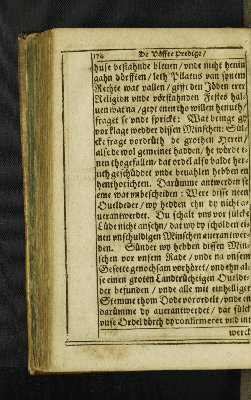 174 De Vöffte Predige/
huse bestahnde bleuen/ vnde nicht henin
gahn dörfften/ leth Pilatus van synem
Rechte wat vallen/ gifft den Jöden erer
Religion vnde vörstahnden Festes hal-
uen wat na/ geyt 
fraget se vnde sprickt: Wat bringe gy
vor klage wedder dissen Minschen: Sül-
cke frage vordrüth de grothen Heren/
alse de wol gemeinet hadden/ he worde e-
nen thogefallen/ dat ordel also balde her-
uth geschüddet vnde beuahlen hebben en
henthorichten. Darümme antworden se
eme wat vnbescheiden: Were disse neen
Oueldeder/ wy hedden en dy nicht a-
uerantwerdet. Du schalt vns vor sülcke
Lüde nicht ansehn/ dat wy dy scholden ei-
nen vnschuldigen Minschen auerantwer-
den. Sünder wy hebben dissen Min-
schen vor vnsem Rade/ vnde na vnsem
Gesette genochsam vorhöret/ vnde ehn al-
se einen groten Landtrüchtigen Oueldede-
der befunden/ vnde alle mit einhelliger
Stemme thom Dode vorordelt/ vnde en
darümme dy auerantwerdet/ dat sülck
vnse Ordel dörch dy confirmeret vnd int
werck